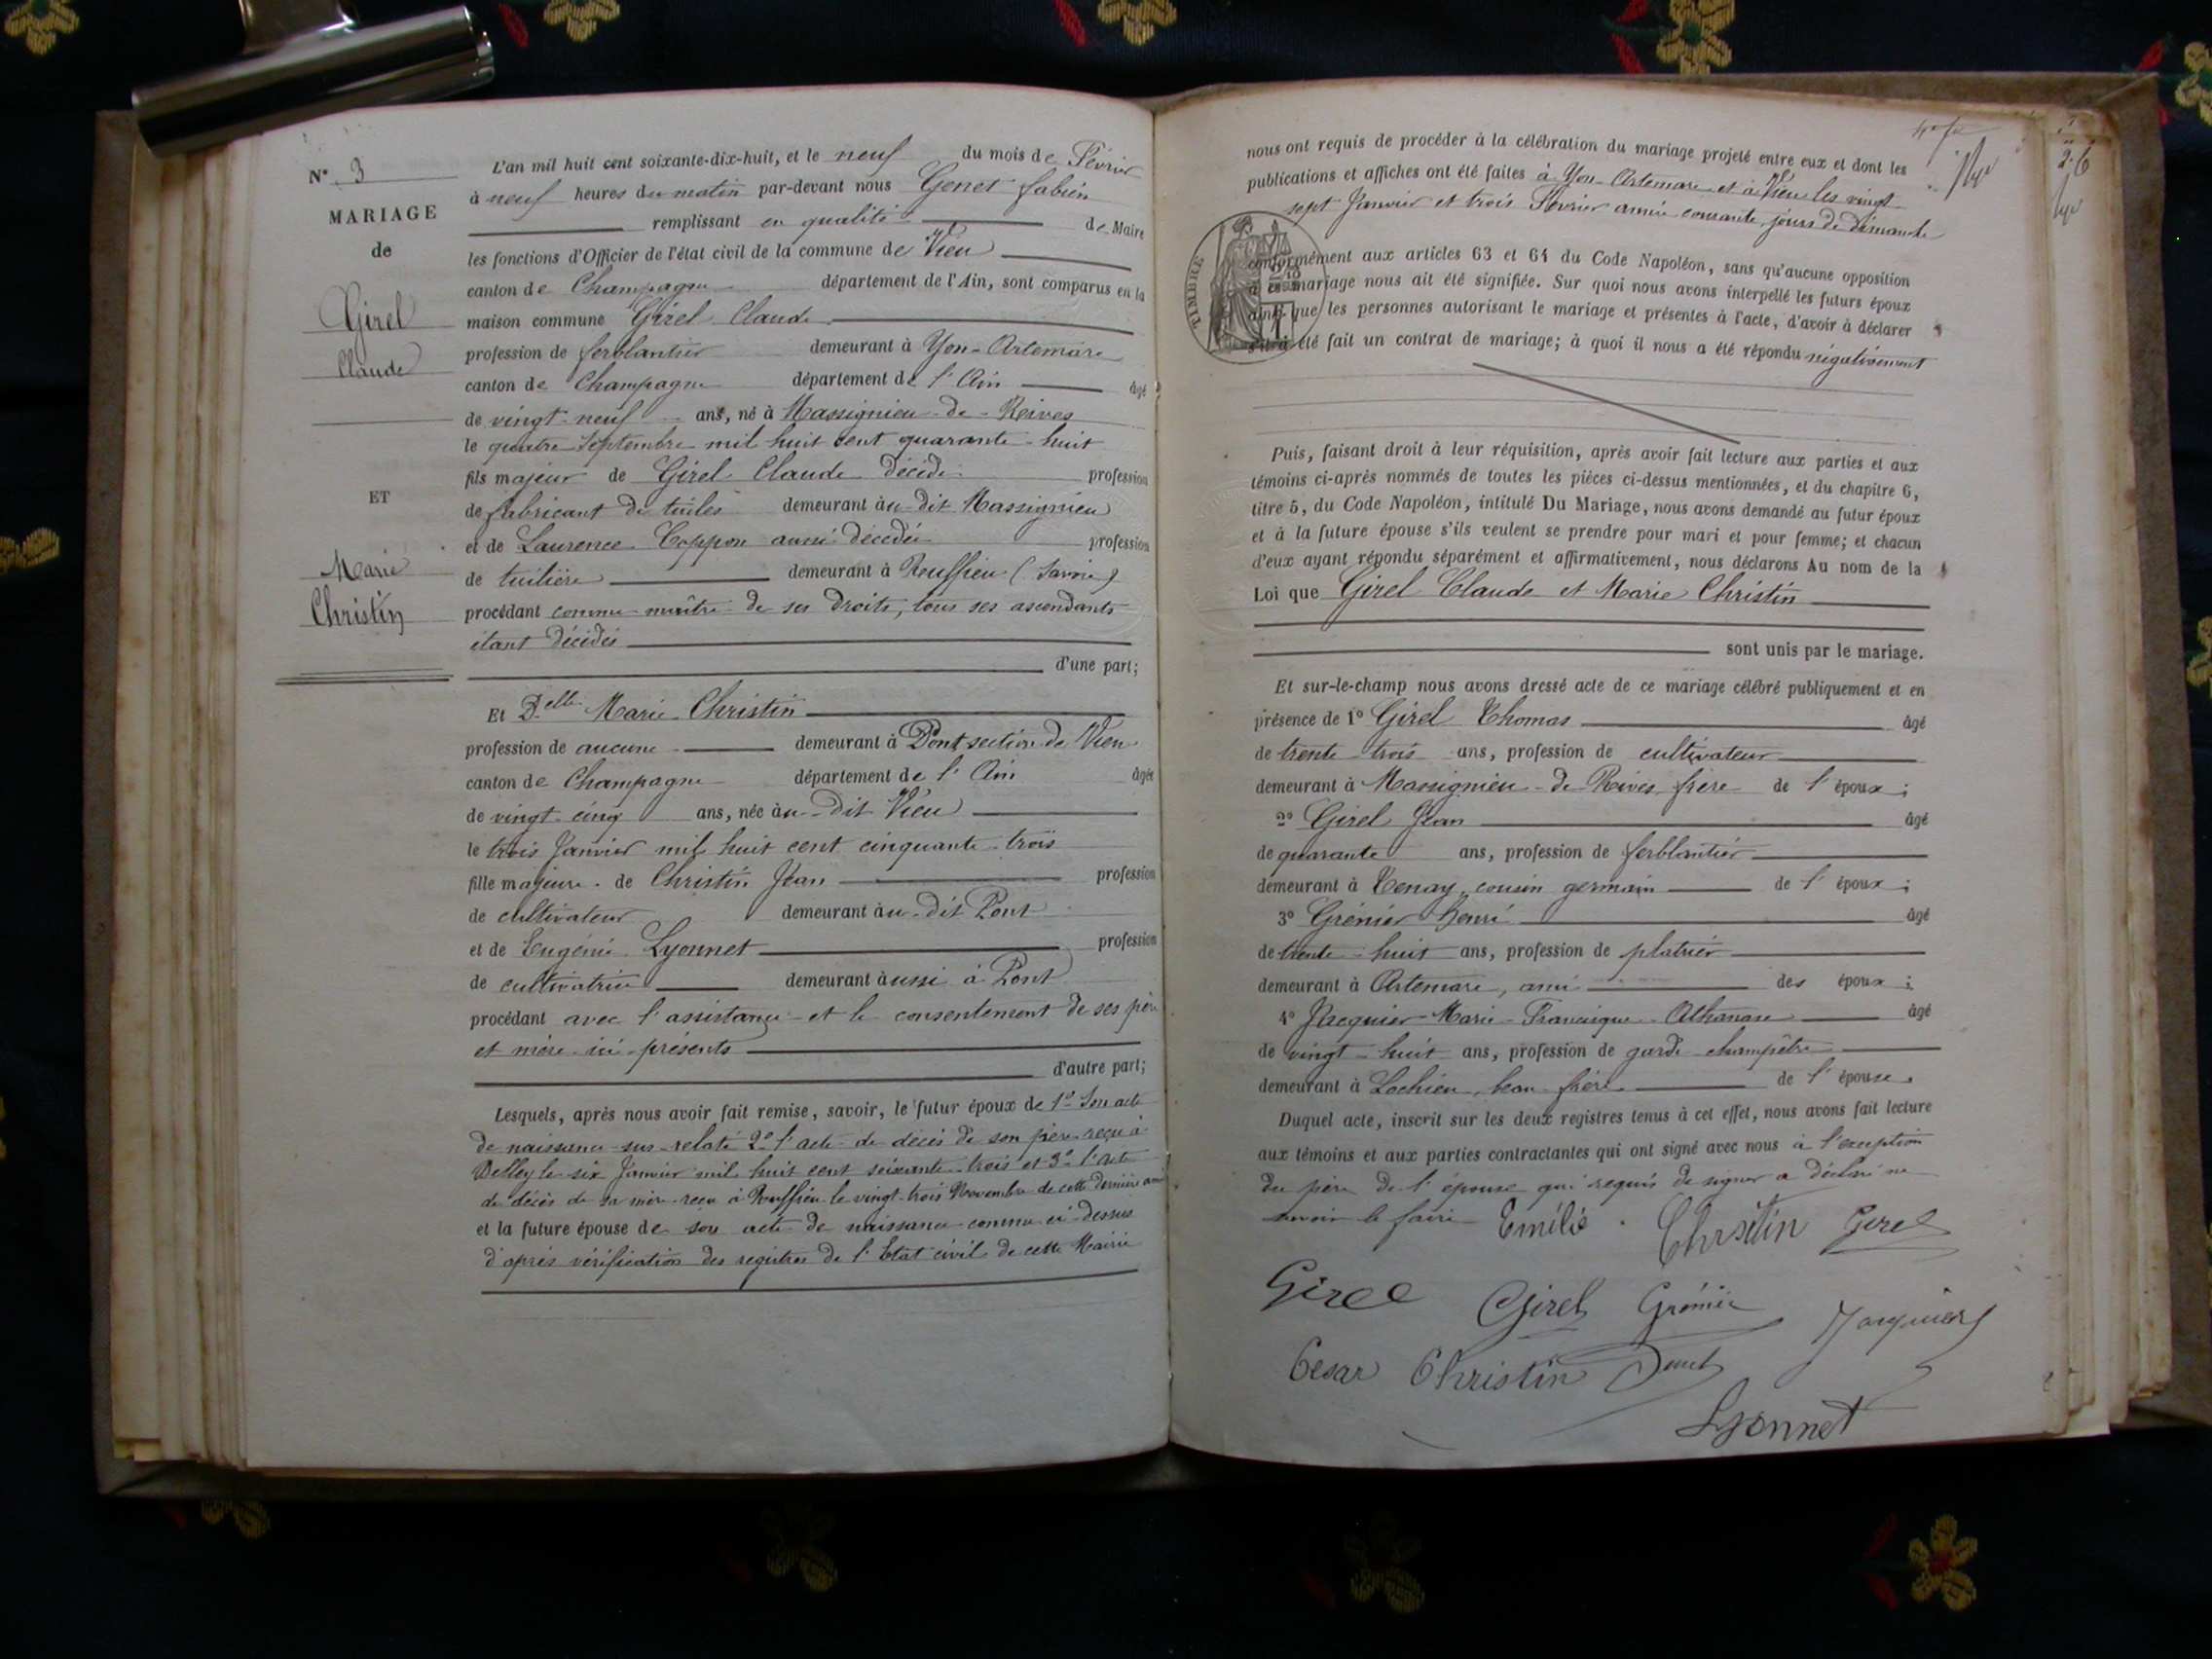 N° 3
MARIAGE
de
Girel
Claude
ET
Marie
Christin
L'an mil huit cent soixante-dix-huit, et le neuf du mois de Février
à neuf heures du matin par-devant nous Genet fabien
remplissant en qualité de Maire
les fonctions d'Officier de l'état civil de la commune de Vieu
canton de Champagne département de l'Ain, sont comparus en la
maison commune Girel Claude
profession de ferblantier demeurant à Yon-Artemare
canton de Champagne département de l'Ain âgé
de vingt-neuf ans, né à Massignieu-de-Reives
le quatre Septembre mil huit cent quarante-huit
fils majeur de Girel Claude décédé profession
de fabricant de tuiles demeurant au-dit Massignieu
et de Laurence Coppon aussi décédée profession
de tuilière demeurant à Rouffieu (Savoie)
procédant comme maître de ses droits, tous ses ascendants
étant décédés
d'une part;
Et Delle Marie Christin
profession de aucune demeurant à Pont section de Vieu
canton de Champagne département de l'Ain âgée
de vingt-cinq ans, née au-dit Vieu
le trois Janvier mil huit cent cinquante-trois
fille majeure de Christin Jean profession
de cultivateur demeurant au-dit Pont
et de Eugénie Lyonnet profession
de cultivatrice demeurant aussi à Pont
procédant avec l'assistance et le consentement de ses père
et mère ici présents
d'autre part;
Lesquels, après nous avoir fait remise, savoir, le futur époux de 1° Son acte
de naissance sus-relaté 2° l'acte de décès de son père reçu à
Belley le six Janvier mil huit cent soixante-trois et 3° l'acte
de décès de sa mère reçu à Rouffieu le vingt-trois Novembre de cette dernière année
et la future épouse de son acte de naissance comme ci-dessus
d'après vérification des registres de l'Etat civil de cette Mairie
nous ont requis de procéder à la célébration du mariage projeté entre eux et dont les
publications et affiches ont été faites à Yon-Artemare et à Vieu les vingt-
sept Janvier et trois Février année courante jours de dimanche
TIMBRE
conformément aux articles 63 et 64 du Code Napoléon, sans qu'aucune opposition
à ce mariage nous ait été signifiée. Sur quoi nous avons interpellé les futurs époux
ainsi que les personnes autorisant le mariage et présentes à l'acte, d'avoir à déclarer
s'il a été fait un contrat de mariage; à quoi il nous a été répondu négativement
Puis, faisant droit à leur réquisition, après avoir fait lecture aux parties et aux
témoins ci-après nommés de toutes les pièces ci-dessus mentionnées, et du chapitre 6,
titre 5, du Code Napoléon, intitulé Du Mariage, nous avons demandé au futur époux
et à la future épouse s'ils veulent se prendre pour mari et pour femme; et chacun
d'eux ayant répondu séparément et affirmativement, nous déclarons Au nom de la
Loi que Girel Claude et Marie Christin
sont unis par le mariage.
Et sur-le-champ nous avons dressé acte de ce mariage célébré publiquement et en
présence de 1° Girel Thomas âgé
de trente-trois ans, profession de cultivateur
demeurant à Massignieu-de-Rives frère de l'époux;
2° Girel Jean âgé
de quarante ans, profession de ferblantier
demeurant à Tenay, cousin germain de l'époux;
3° Grénier henri âgé
de trente-huit ans, profession de platrier
demeurant à Artemare, ami des époux;
4° Jacquier Marie-Francisque-Athanase âgé
de vingt-huit ans, profession de garde champêtre
demeurant à Lochieu, beau-frère de l'épouse.
Duquel acte, inscrit sur les deux registres tenus à cet effet, nous avons fait lecture
aux témoins et aux parties contractantes qui ont signé avec nous à l'exception
du père de l'épouse qui requis de signer a déclaré ne
savoir le faire
Emélie Chrsitin Girel
Girel Girel Grénier Jacquier
Cesar Christin Genet
Lyonnet
2.6